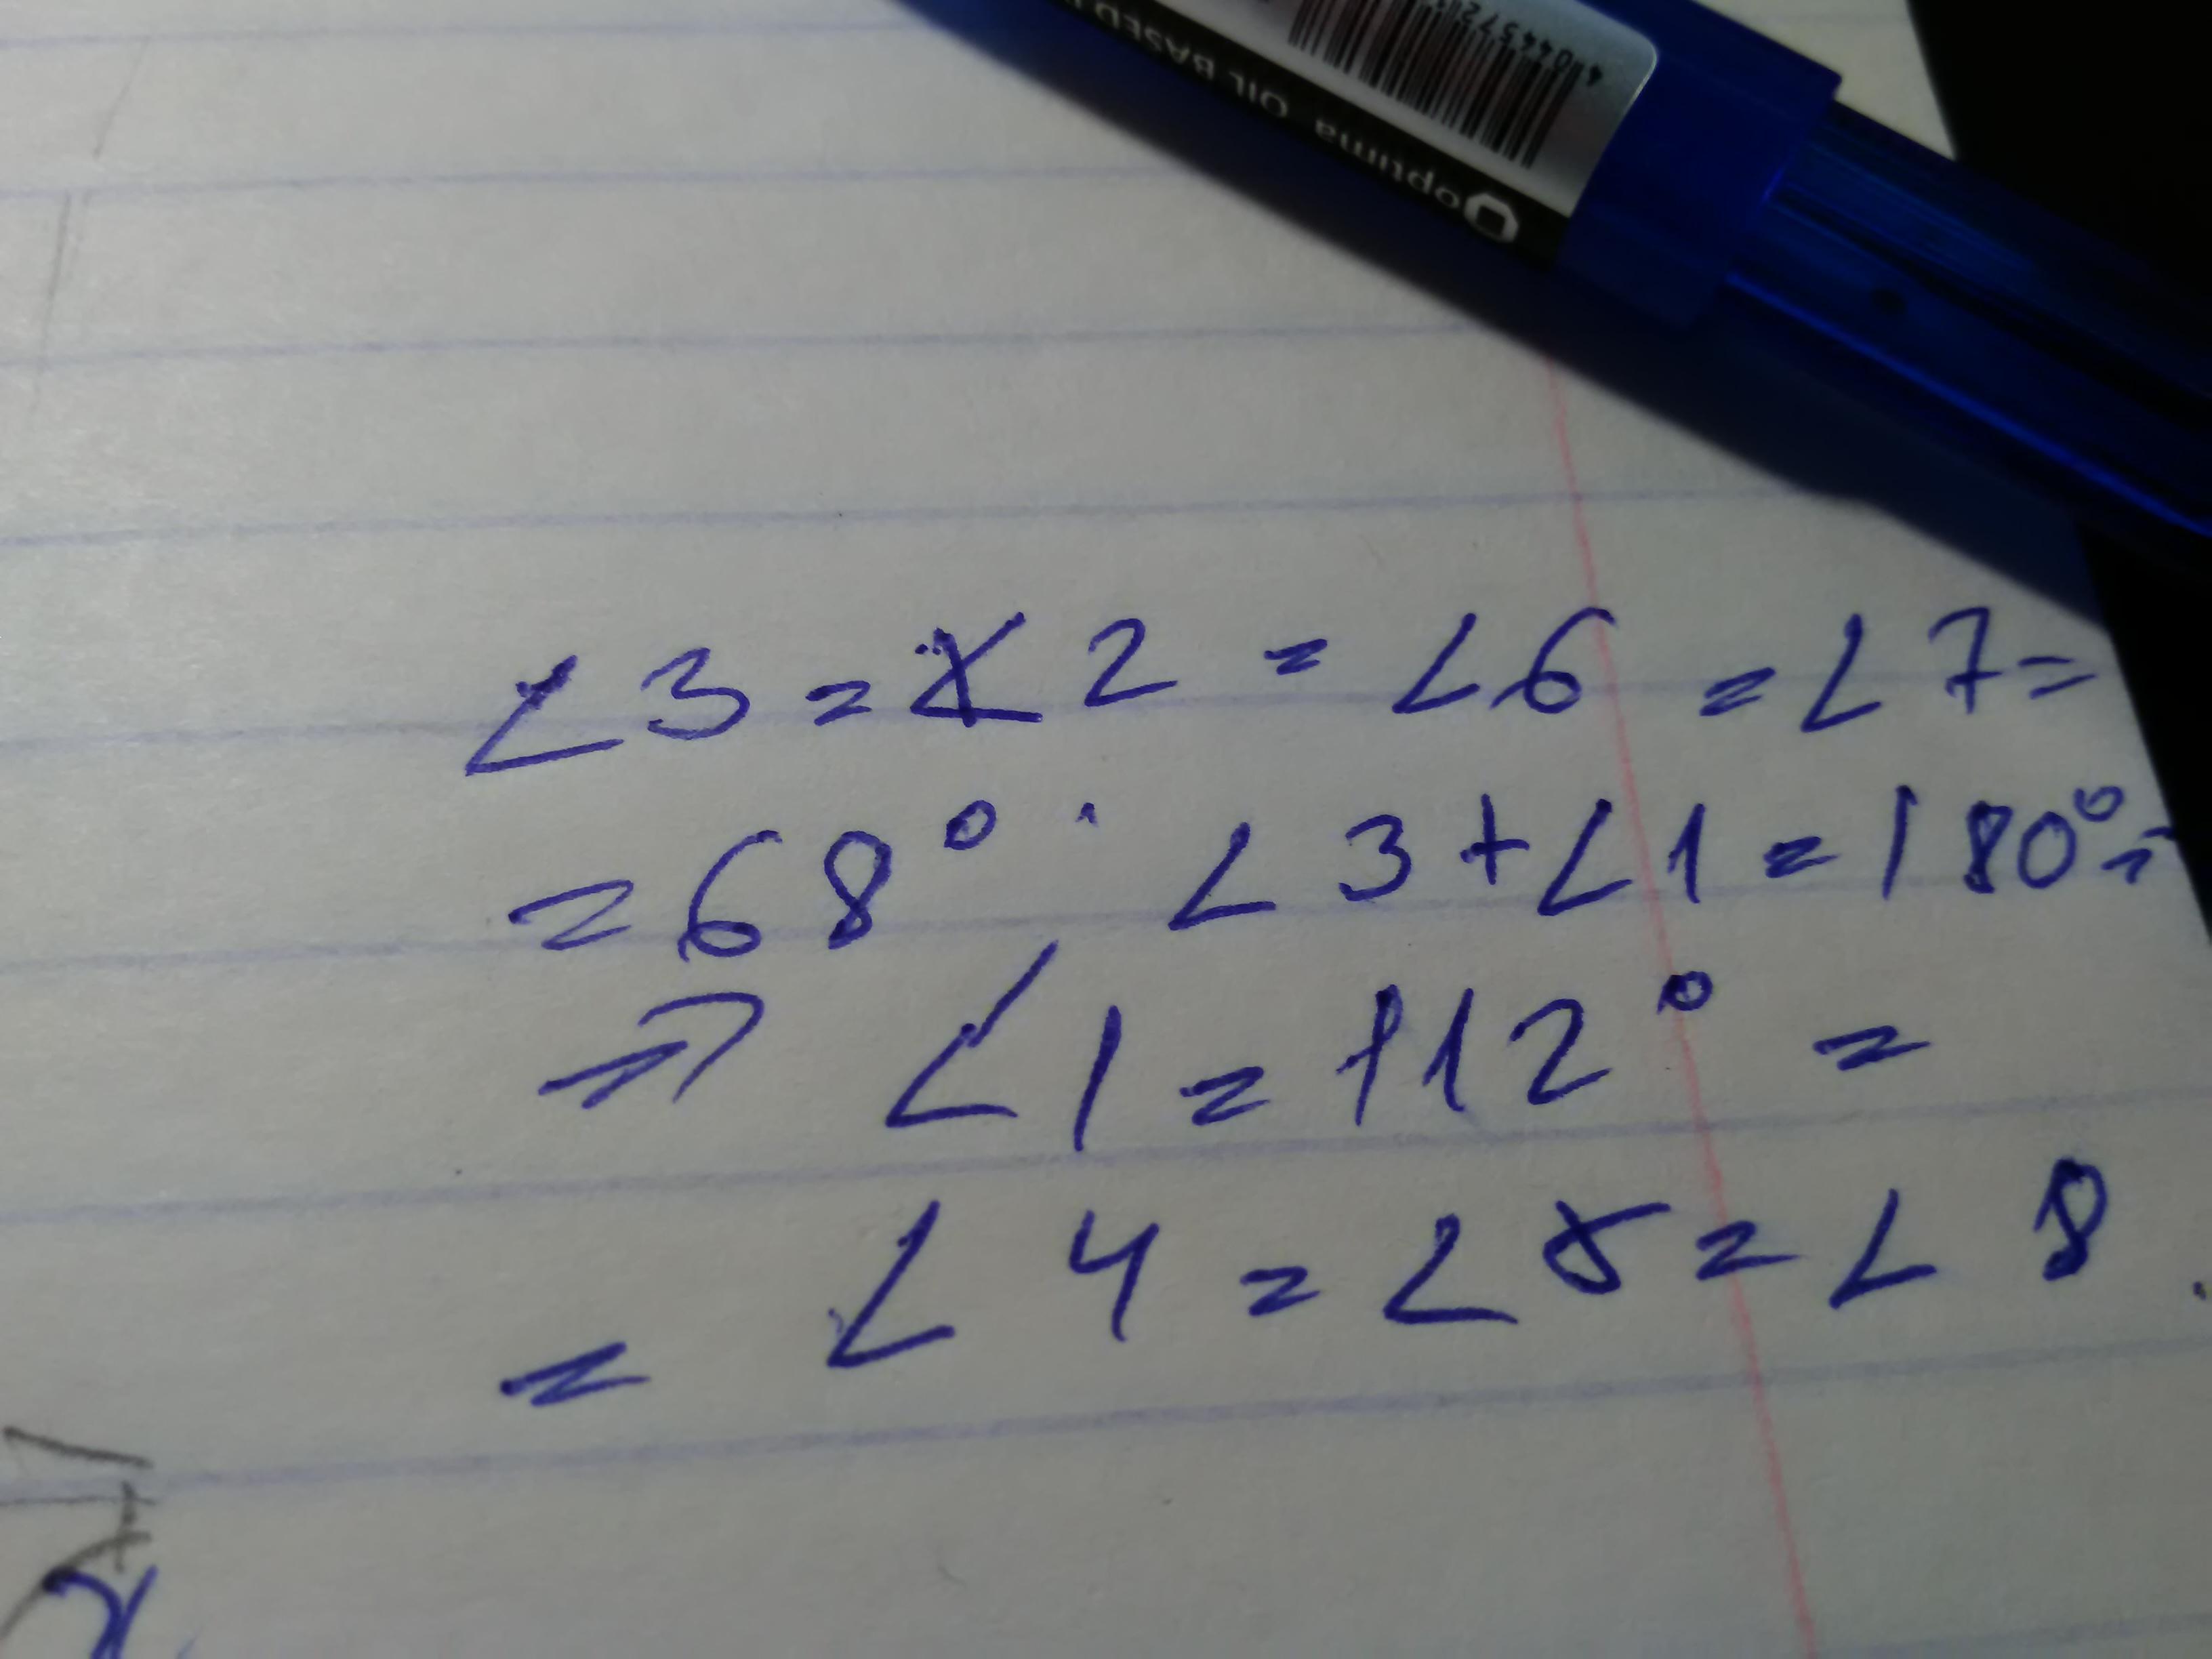 optima OIL BASED
∠3=∠2=∠6=∠7=
=68°. ∠3+∠1=180°=
⇒ ∠1=112°=
=∠4=∠5=∠8.